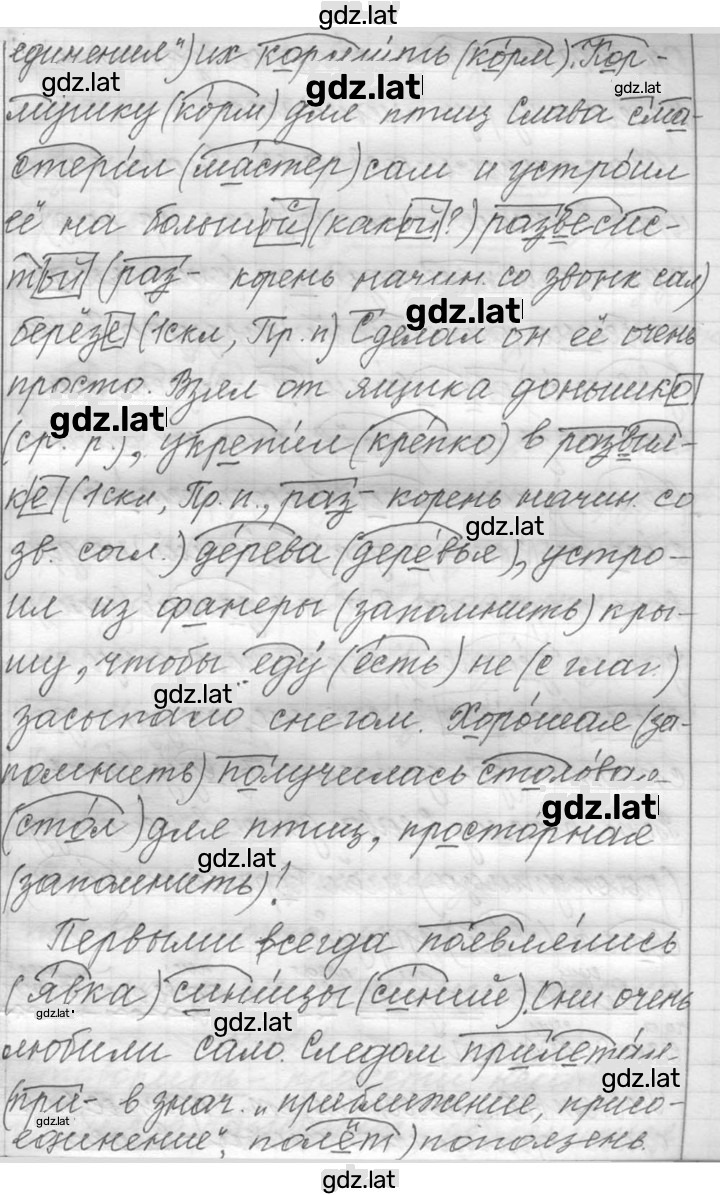 gdz.lat
единения") их кормить (корм). Кор-
gdz.lat gdz.lat gdz.lat
мушку (корм) для птиц Слава сма-
стерил (мастер) сам и устроил
её на большой (какой?) развесис-
тый (раз- корень начин. со звонк согл)
gdz.lat
берёзе (1скл, Пр. п) Сделал он её очень
просто. Взял от ящика донышко
gdz.lat
(ср. р.), укрепил (крепко) в развил-
ке (1скл, Пр. п., раз- корень начин. со
gdz.lat
зв. согл.) дерева (деревья), устро-
ил из фанеры (запомнить) кры-
шу, чтобы еду (есть) не (с глаг.)
gdz.lat
засыпало снегом. Хорошая (за-
помнить) получилась столова
gdz.lat
(стол) для птиц, просторная
gdz.lat
(запомнить)!
Первыми всегда появлялись
(явка) синицы (синий). Они очень
gdz.lat gdz.lat
любили сало. Следом прилетал
gdz.lat
(при- в знач. „приближение, присо-
gdz.lat
единение", полёт) поползень.
gdz.lat